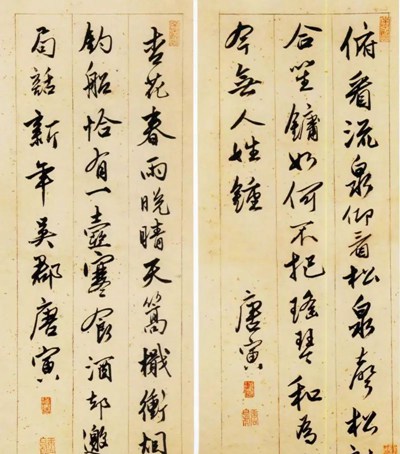 俯看流泉仰看松泉聲松
合笙鏞如何不把瑤琴和為
今無人姓鍾
唐寅
杏花春雨晚晴天篙檝衝烟
釣船恰有一壺寒食酒却邀
局話新年吳郡唐寅